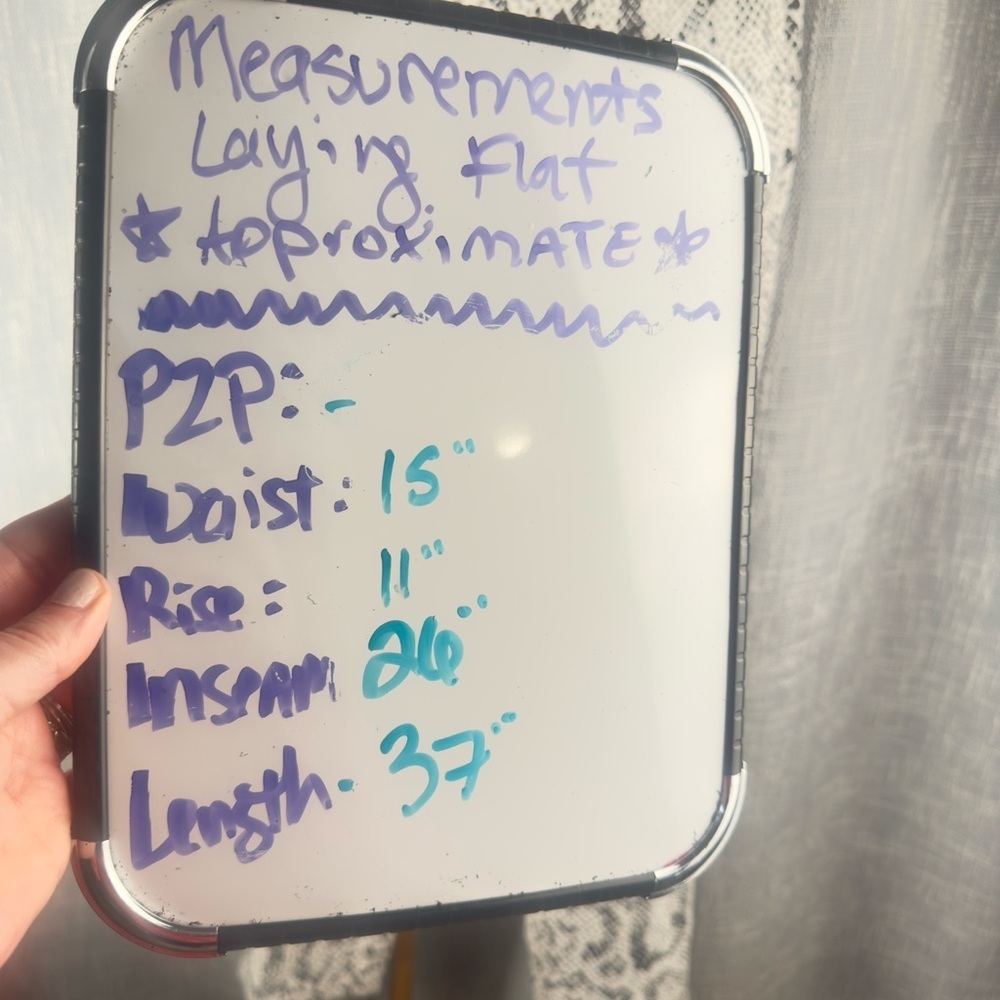 Measurements
Laying Flat
☆ ApproxiMATE ☆
P2P: -
Waist: 15"
Rise: 11"
Inseam 26"
Length- 37"